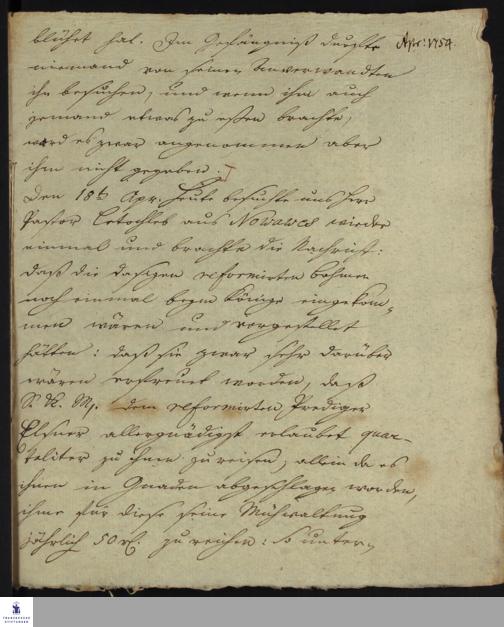 blühet hat. Im Gefängniß durffte Apr: 1754.
niemand von seinen Anverwandten
ihn besuchen, und wenn ihm auch
jemand etwas zu eßen brachte,
ward es zwar angenommen aber
ihm nicht gegeben.
Den 18t Apr. Heute besuchte uns Herr
Pastor Letochleb aus Nowawes wieder
einmal und brachte die Nachricht:
daß die dasigen reformirten böhmen
noch einmal beym Könige eingekom-
men wären und vorgestellet
hätten: daß sie zwar sehr darüber
wären erfreuet worden, daß
S. K. M. dem reformirten Prediger
Elsner allergnädigst erlaubet quar-
taliter zu ihnen zu reisen, allein da es
ihnen in Gnaden abgeschlagen worden,
ihme für diese seine Mühwaltung
jährlich 50 zu reichen: so untern
FRANCKESCHE
STIFTUNGEN